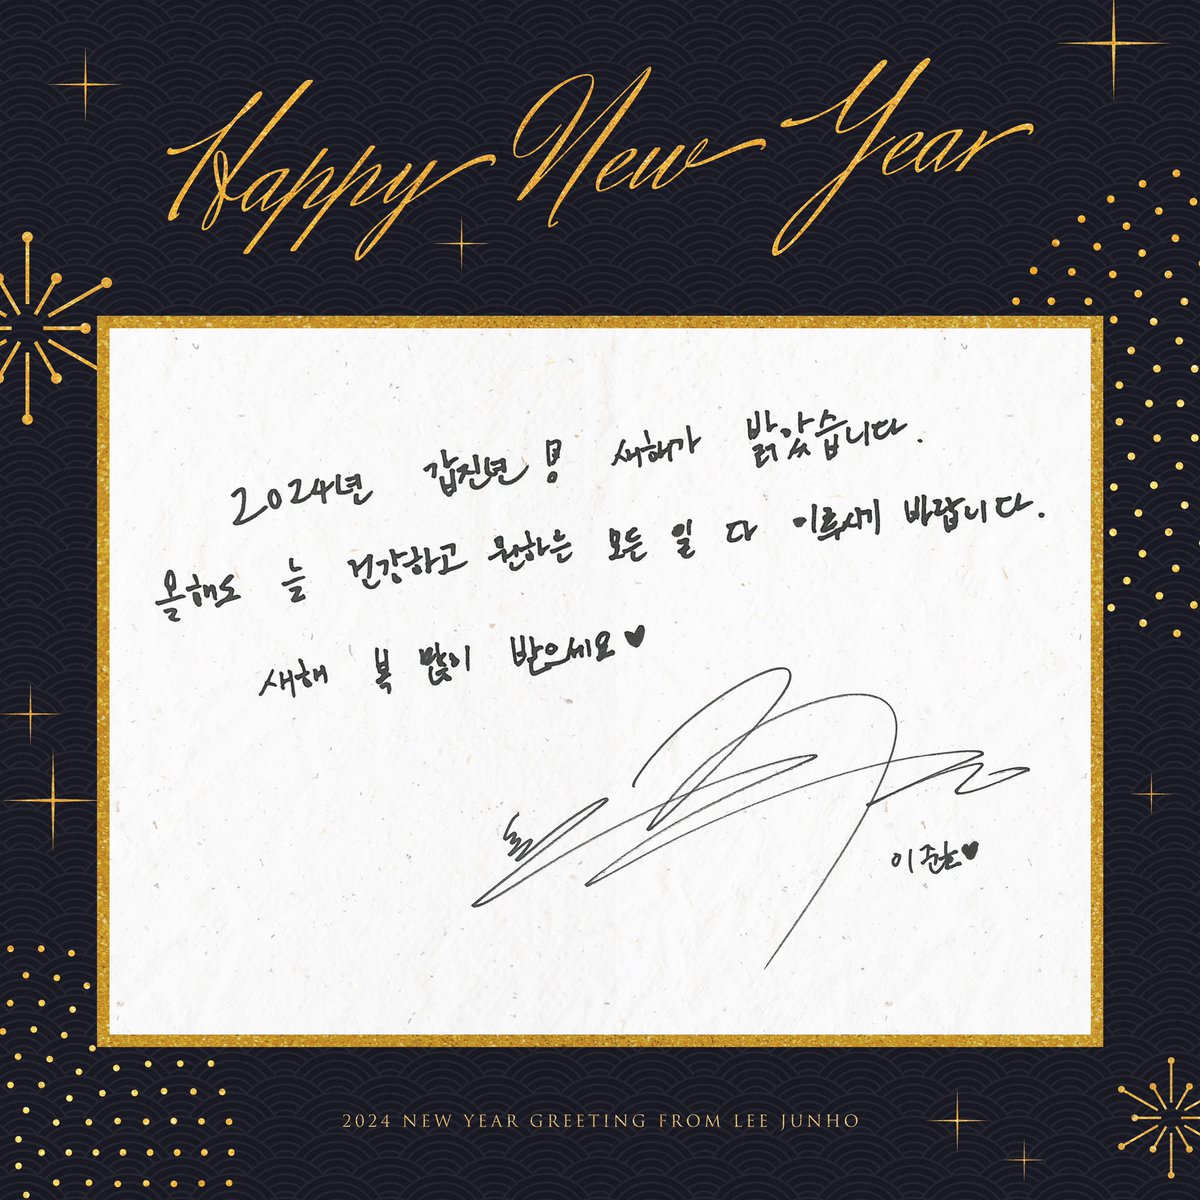 Happy New Year
2024년 갑진년 새해가 밝았습니다.
올해도 늘 건강하고 원하는 모든 일 다 이루시기 바랍니다.
새해 복 많이 받으세요♥
이준호♥
2024 NEW YEAR GREETING FROM LEE JUNHO